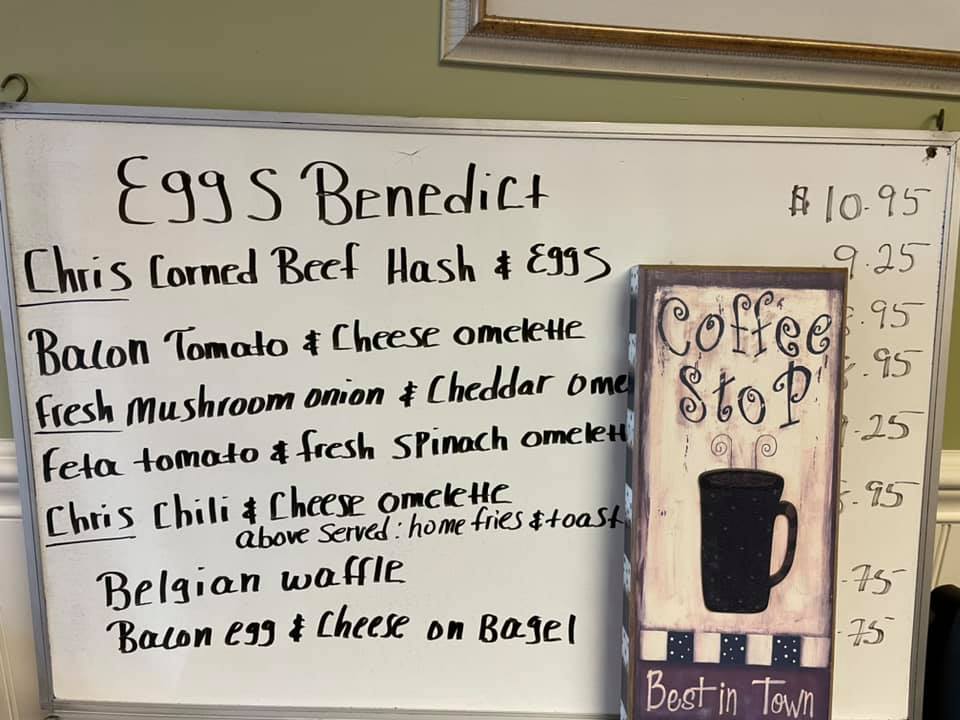 Eggs Benedict $10.95
Chris Corned Beef Hash & Eggs 9.25
Bacon Tomato & Cheese omelette .95
Fresh mushroom onion & Cheddar ome .95
Feta tomato & fresh spinach omelett .25
Chris Chili & Cheese omelette .95
above served: home fries & toast
Belgian waffle .75
Bacon egg & Cheese on Bagel .75
Coffee
Stop
Best in Town